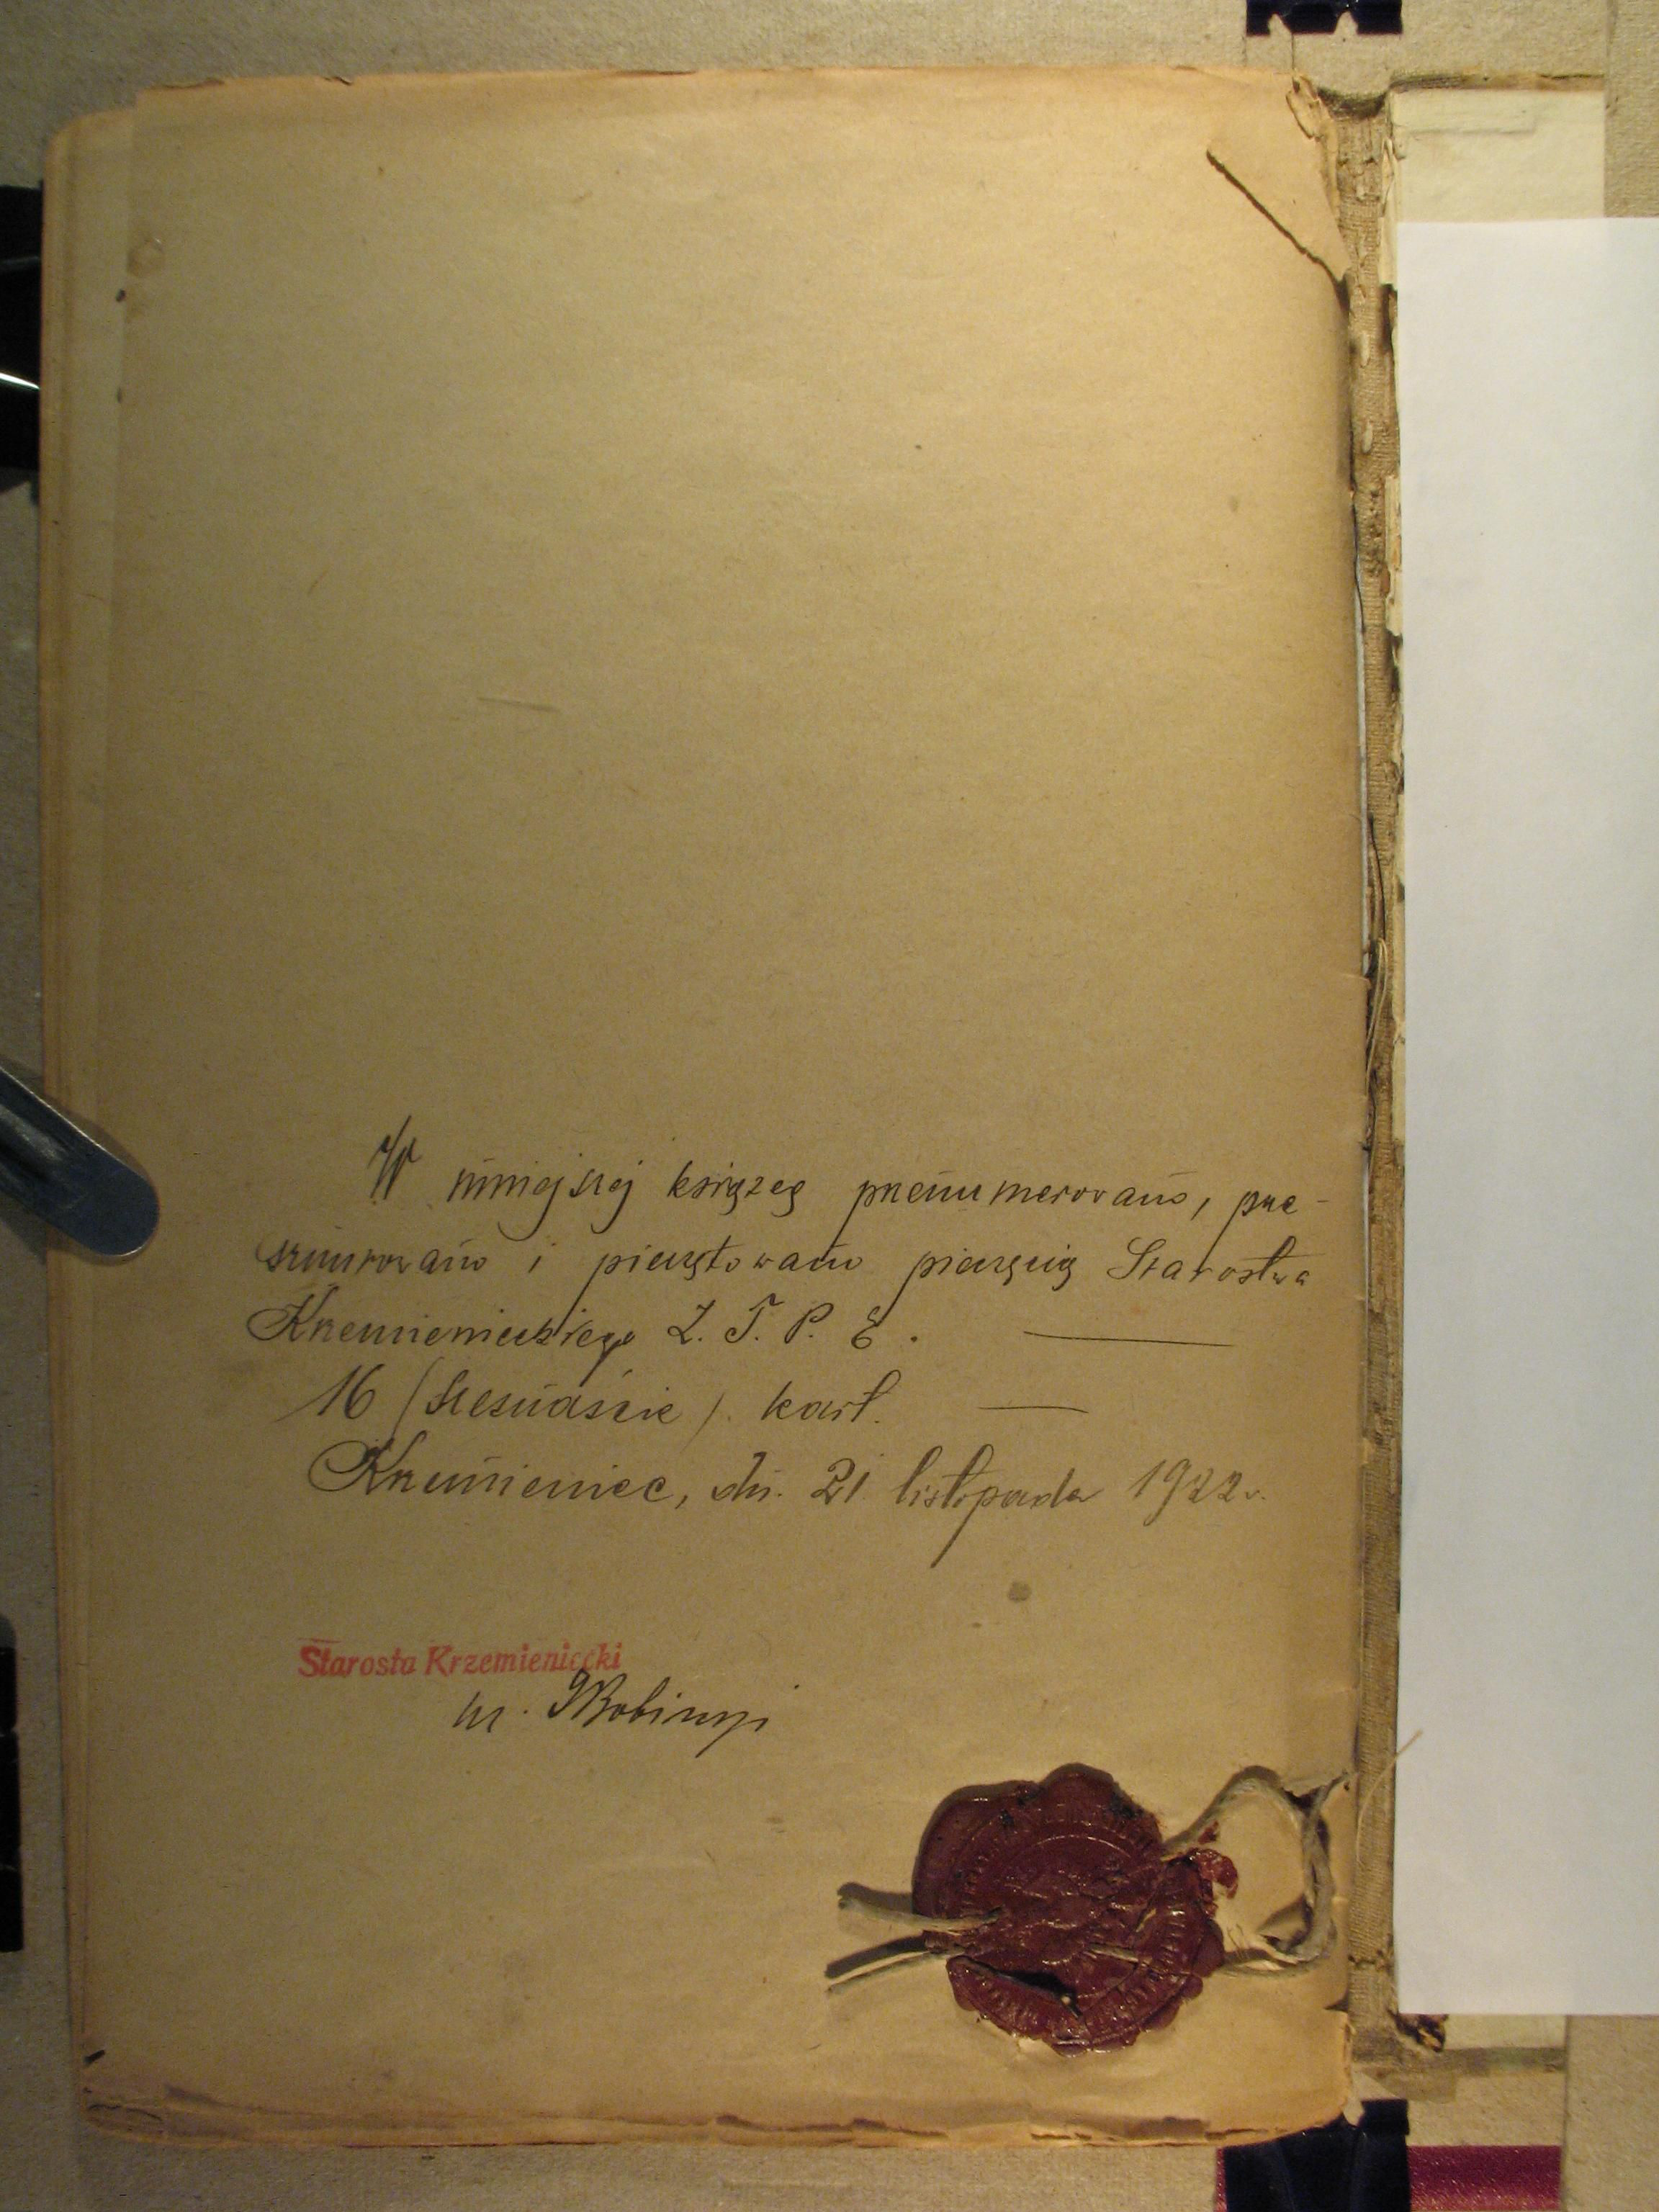 W niniejszej księzeg przenumerowano, prze-
sznurowano i pieczętowano pieczęcią Starostwa
Krzemienieckiego Z. T. P. E.
16 (szesnaście) kart.
Krzemieniec, dn. 21 listopada 1922 r.
Starosta Krzemieniecki